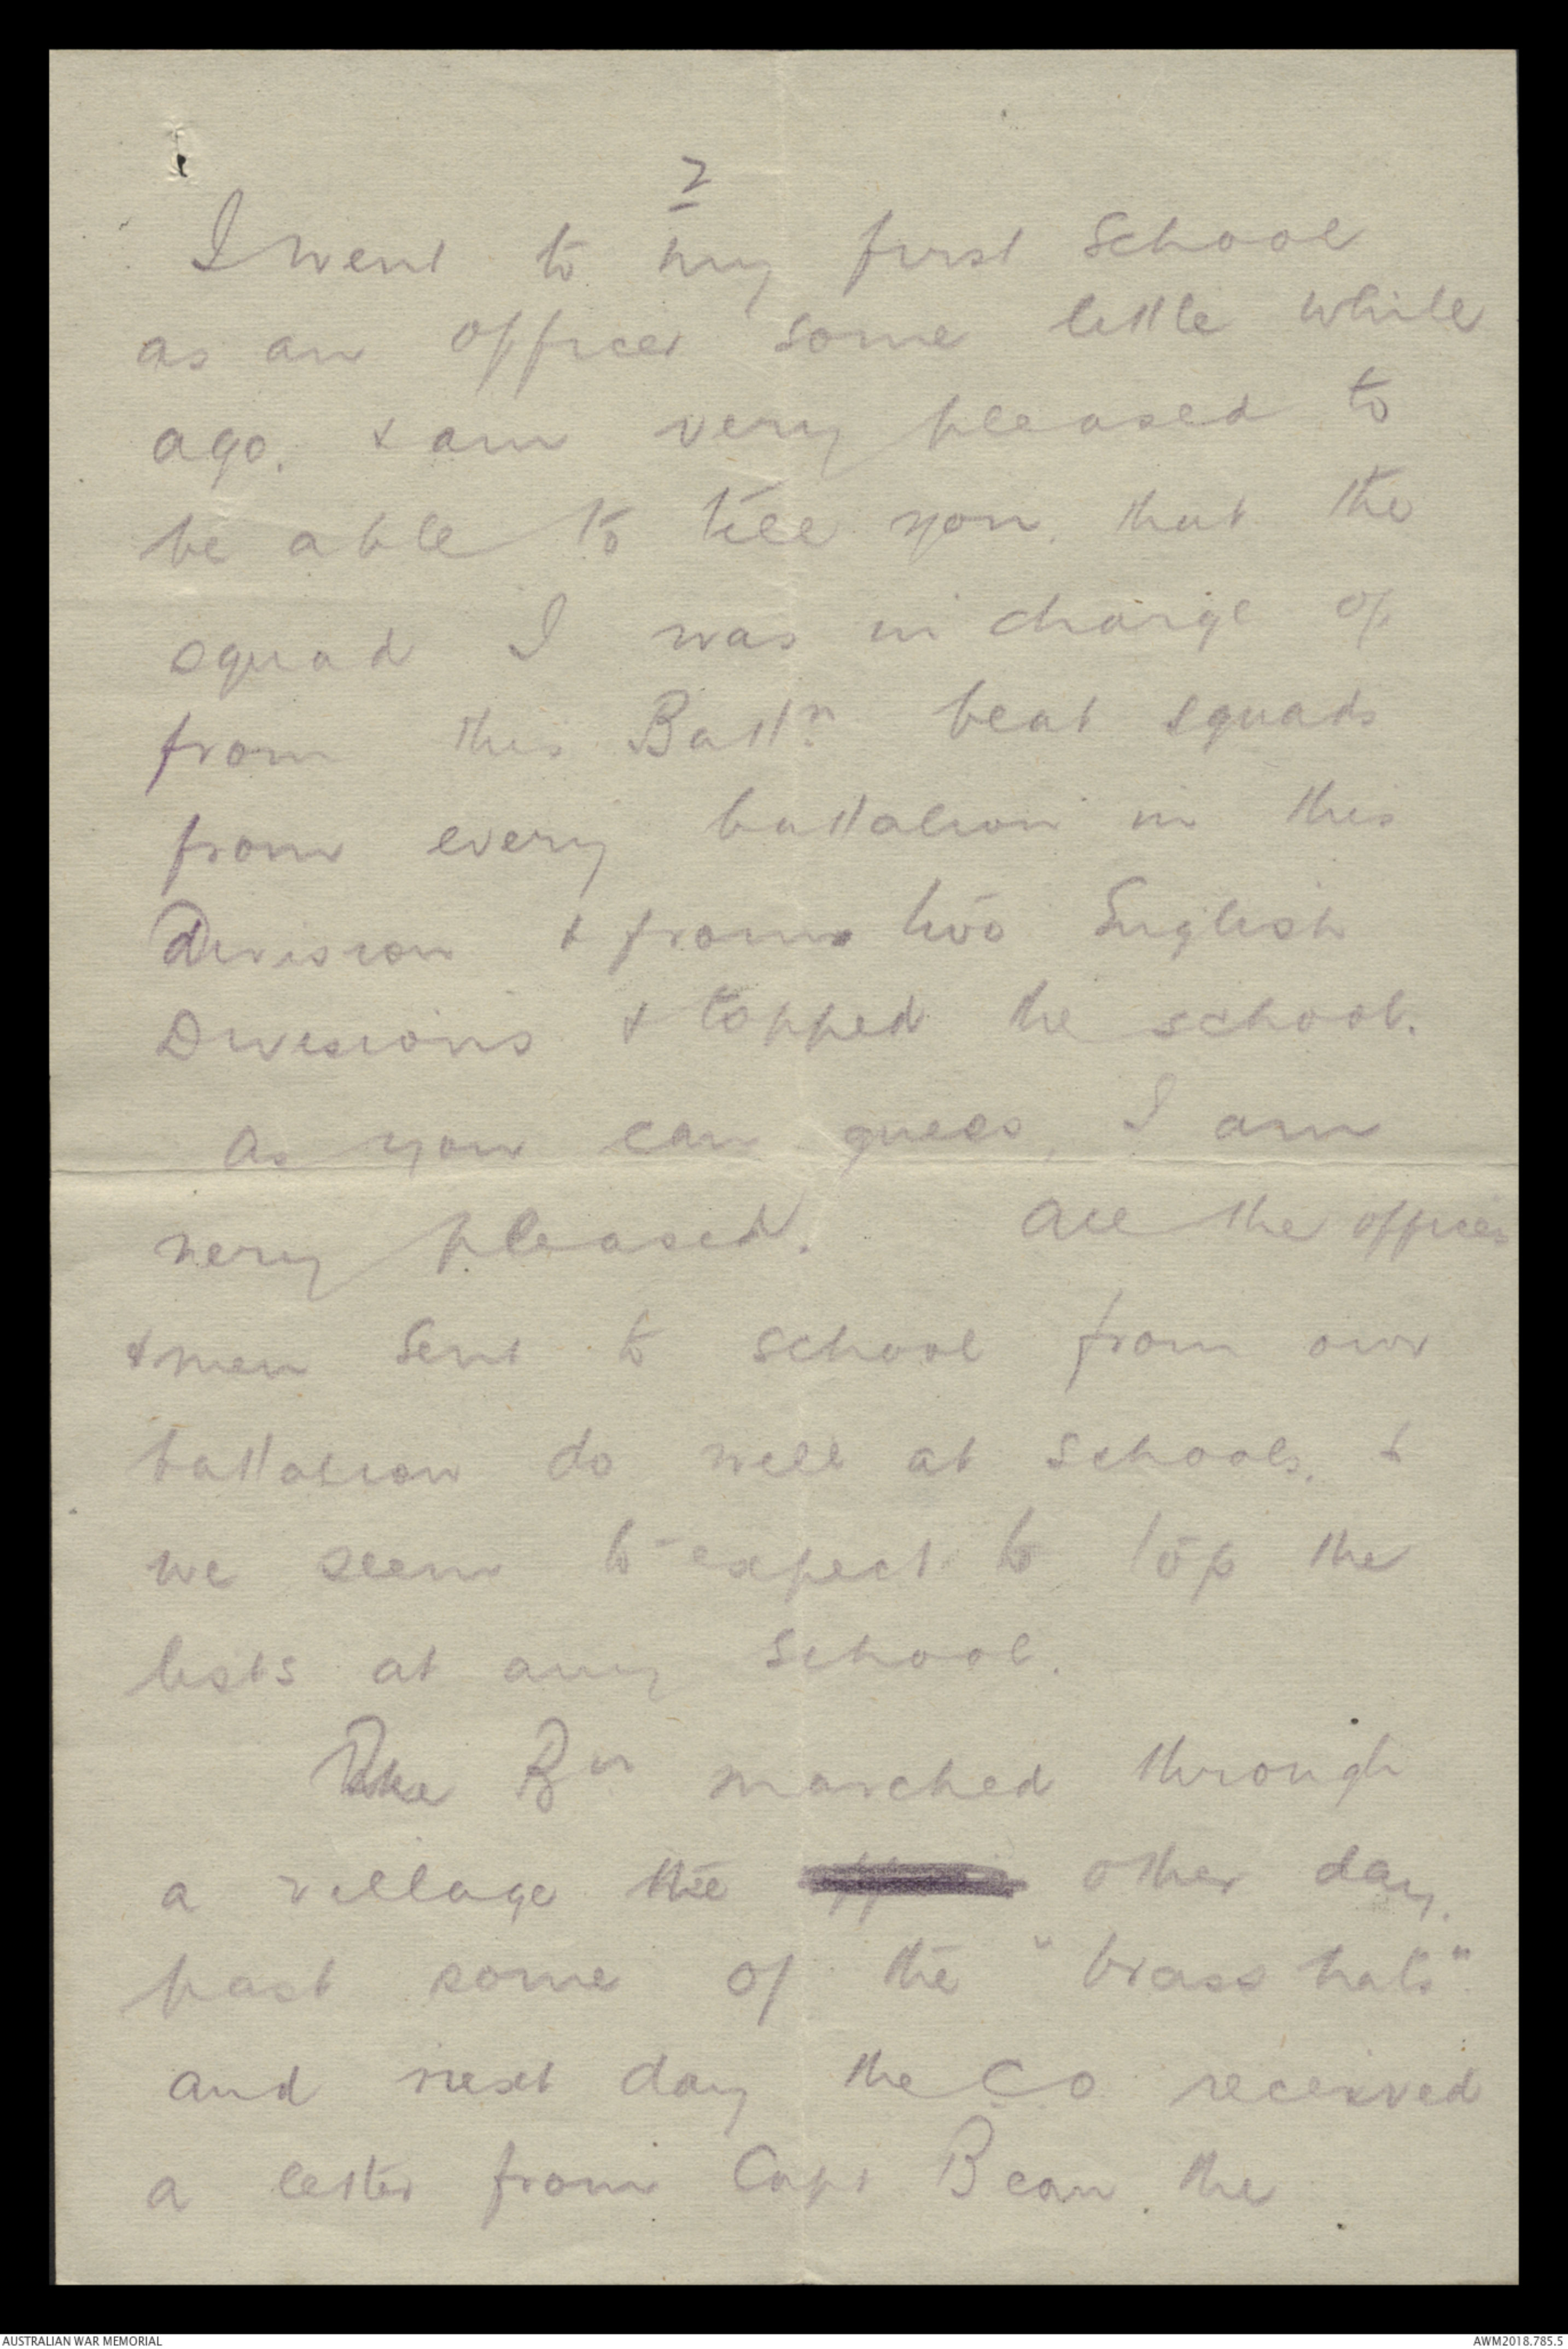 2
I went to my first school
as an officer some little while
ago. & am very pleased to
be able to tell you that the
squad I was in charge of
from this Battn beat squads
from every battalion in this
Division & from two English
Divisions & topped the school.
As you can guess, I am
very pleased. All the officers
& men sent to school from our
battalion do well at schools, &
we seem to expect to top the
lists at any school.
The Bn marched through
a village the other day,
past some of the "brass hats"
and next day the CO received
a letter from Capt Bean, the
AUSTRALIAN WAR MEMORIAL
AWM2018.785.5